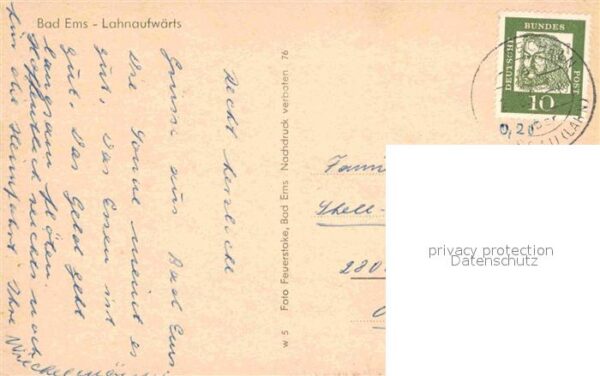 Bad Ems - Lahnaufwärts
Recht herzliche
Grüsse aus Bad Ems
Die Sonne meint es
gut, das Essen ist
gut. Das Geld geht
langsam flöten.
Hoffentlich reicht es noch
für die Heimfahrt Ihre
w 5 Foto Feuerstake, Bad Ems Nachdruck verboten 76
DEUTSCHE BUNDES POST
10
0,20
(LAHN)
Fami
Shell-
280
privacy protection
Datenschutz